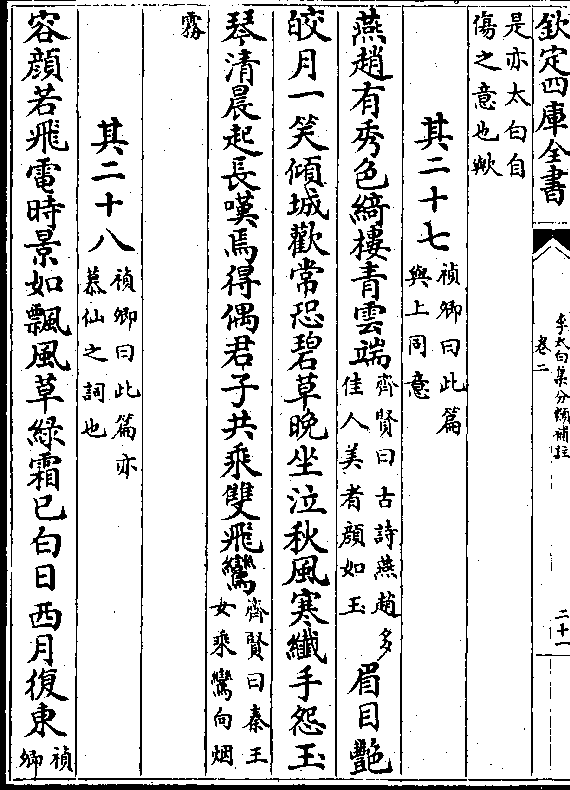 欽定四庫全書
李太白集分類補註
卷二
二十一
是亦太白自
傷之意也歟
其二十七
禎卿曰此篇
與上同意
燕趙有秀色綺樓青雲端
齊賢曰古詩燕趙多
佳人美者顔如玉
眉目艷
皎月一笑傾城歡常恐碧草晚坐泣秋風寒纖手怨玉
琴清晨起長嘆焉得偶君子共乘雙飛鸞
齊賢曰秦王
女乘鸞向烟
霧
其二十八
禎卿曰此篇亦
慕仙之詞也
容顔若飛電時景如飄風草緑霜已白日西月復東
禎
卿